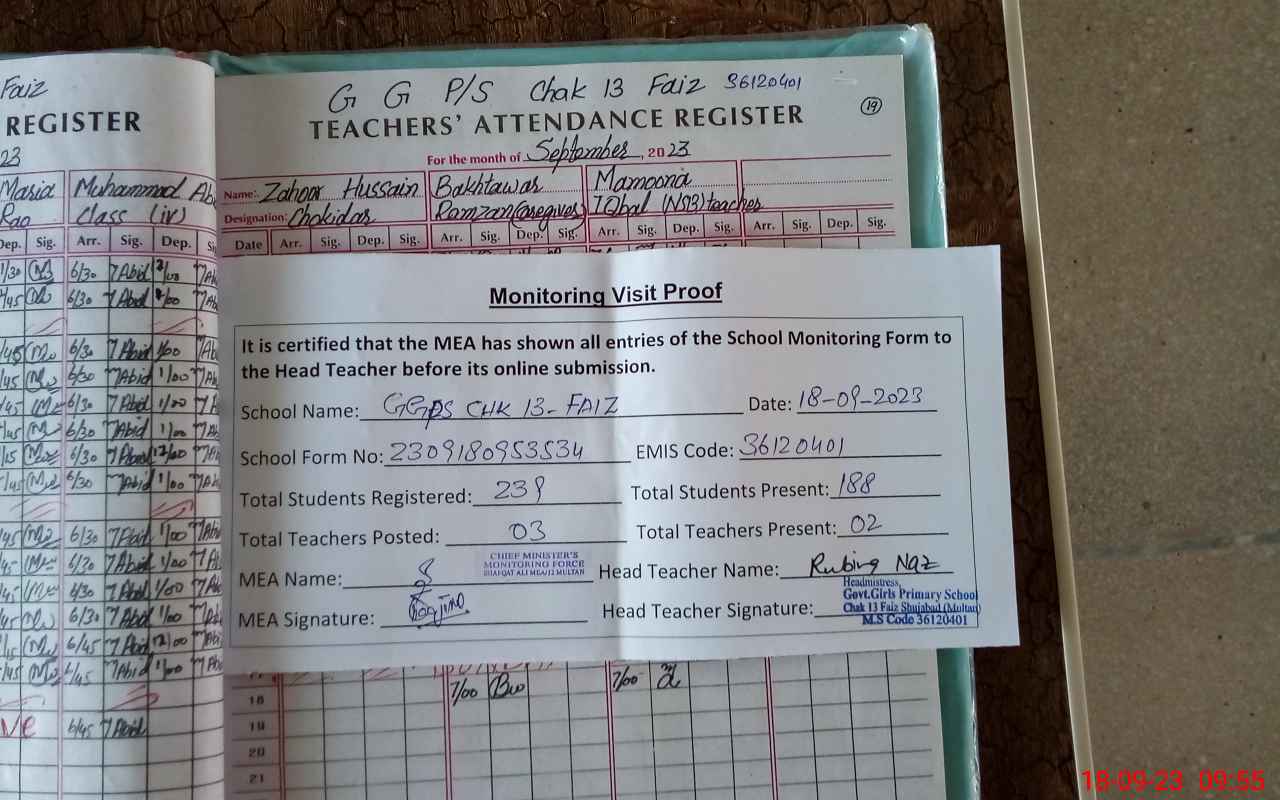 Faiz
REGISTER
23
Masia Muhammad Ab
Rao Class (iv)
Dep. Sig. Arr. Sig. Dep.
1/30 6/30 7Abid
6/30 7Abid 1/00
6/30 7Abid 1/00
6/30 7Abid 1/00
6/30 7Abid 1/00
6/30 7Abid 1/00
6/30 7Abid 12/00
6/30 7Abid 1/00
6/30 7Abid 1/00
6/30 7Abid 1/00
6/30 7Abid 1/00
6/30 7Abid 1/00
6/45 7Abid 12/00
6/45 7Abid 1/00
6/45 7Abid
G G P/S Chak 13 Faiz 36120401
19
TEACHERS' ATTENDANCE REGISTER
For the month of September, 2023
Name: Zahoor Hussain Bakhtawar Mamoona
Designation: Chokidar Ramzan (Caregiver) IQbal (NSB) teacher
Date Arr. Sig. Dep. Sig. Arr. Sig. Dep. Sig. Arr. Sig. Dep. Sig. Arr. Sig. Dep. Sig.
Monitoring Visit Proof
It is certified that the MEA has shown all entries of the School Monitoring Form to
the Head Teacher before its online submission.
School Name: GGPS CHK 13-FAIZ Date: 18-09-2023
School Form No: 2309180953534 EMIS Code: 36120401
Total Students Registered: 239 Total Students Present: 188
Total Teachers Posted: 03 Total Teachers Present: 02
CHIEF MINISTER'S
MONITORING FORCE
SHAFQAT ALI MEA/12 MULTAN
MEA Name: Head Teacher Name: Rubina Naz
MEA Signature: Head Teacher Signature:
Headmistress,
Govt.Girls Primary School
Chak 13 Faiz Shujabad (Multan)
M.S Code 36120401
17
18 7/00 7/00
19
20
21
18-09-23 09:55